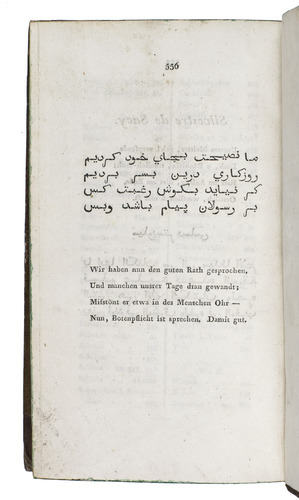 556
ما نصيحت بجاي خود كرديم
روزكاري درين بسر برديم
كر نيايد بكوش رغبت كس
بر رسولان پيام باشد وبس
Wir haben nun den guten Rath gesprochen,
Und manchen unsrer Tage dran gewandt;
Misstönt er etwa in des Menschen Ohr —
Nun, Botenpflicht ist sprechen. Damit gut.